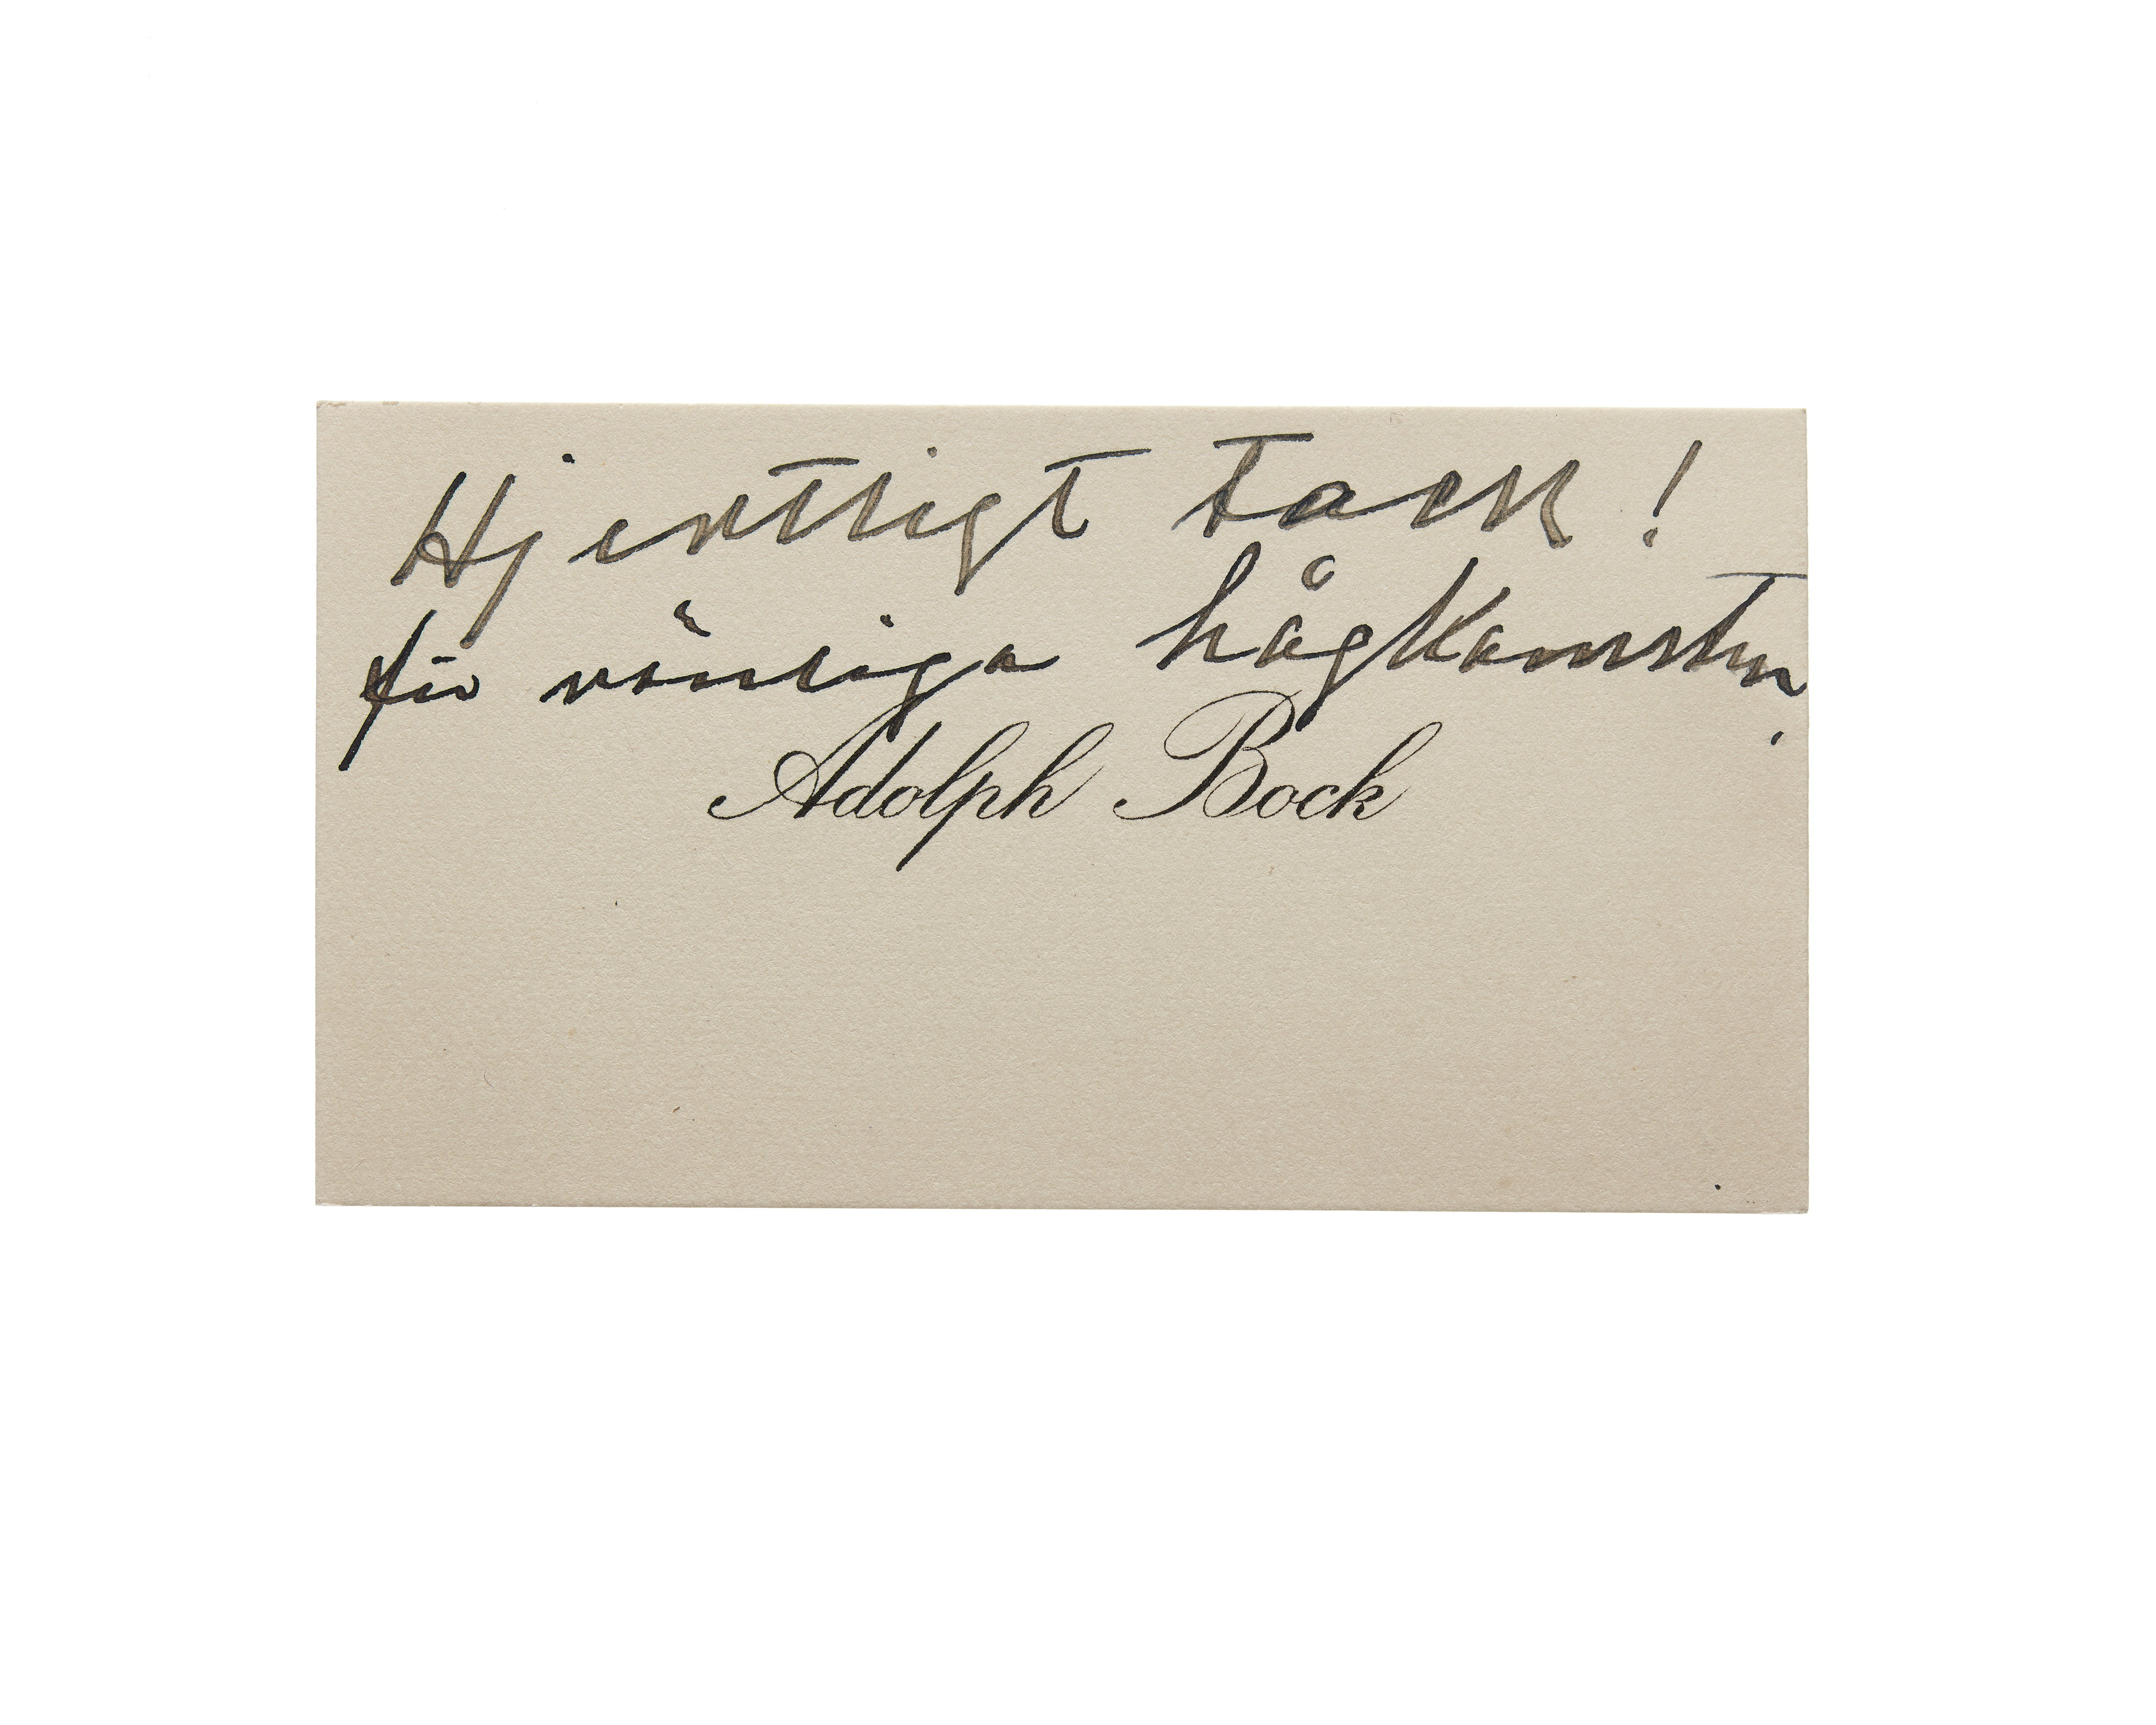 Hjertligt tack!
för vänliga hågkomsten.
Adolph Bock